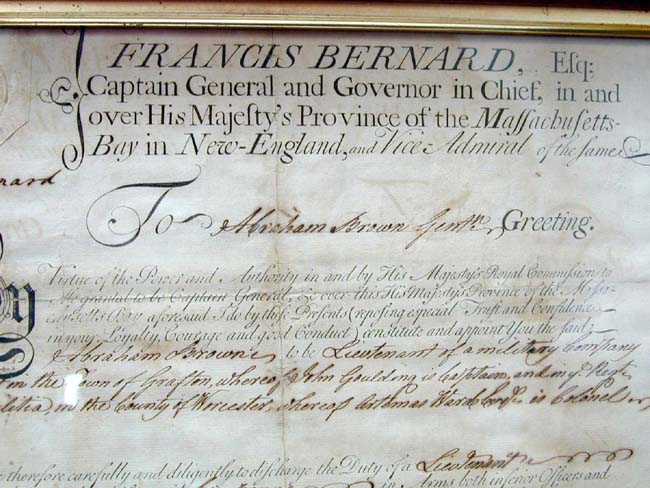 FRANCIS BERNARD, Eſq;
Captain General and Governor in Chief, in and
over His Majeſty's Province of the Maſſachuſetts-
Bay in New-England, and Vice-Admiral of the ſame
To Abraham Brown Gentn. Greeting.
Virtue of the Power and Authority, in and by His Majeſty's Royal Commiſſion to
Me granted to be Captain General, &c over this His Majeſty's Province of the Maſſa-
chuſetts-Bay aforeſaid, I do by theſe Preſents (repoſing eſpecial Truſt and Confidence
in your Loyalty, Courage and good Conduct) conſtitute and appoint You the ſaid
Abraham Brown, to be Lieutenant of a military Company
in the Town of Grafton, whereof John Goulding is Captain, and in ye Regt
in the County of Worceſter, whereof Artemas Ward Eſqr. is Colonel
therefore carefully and diligently to diſcharge the Duty of a Lieutenant
in Arms both inferior Officers and